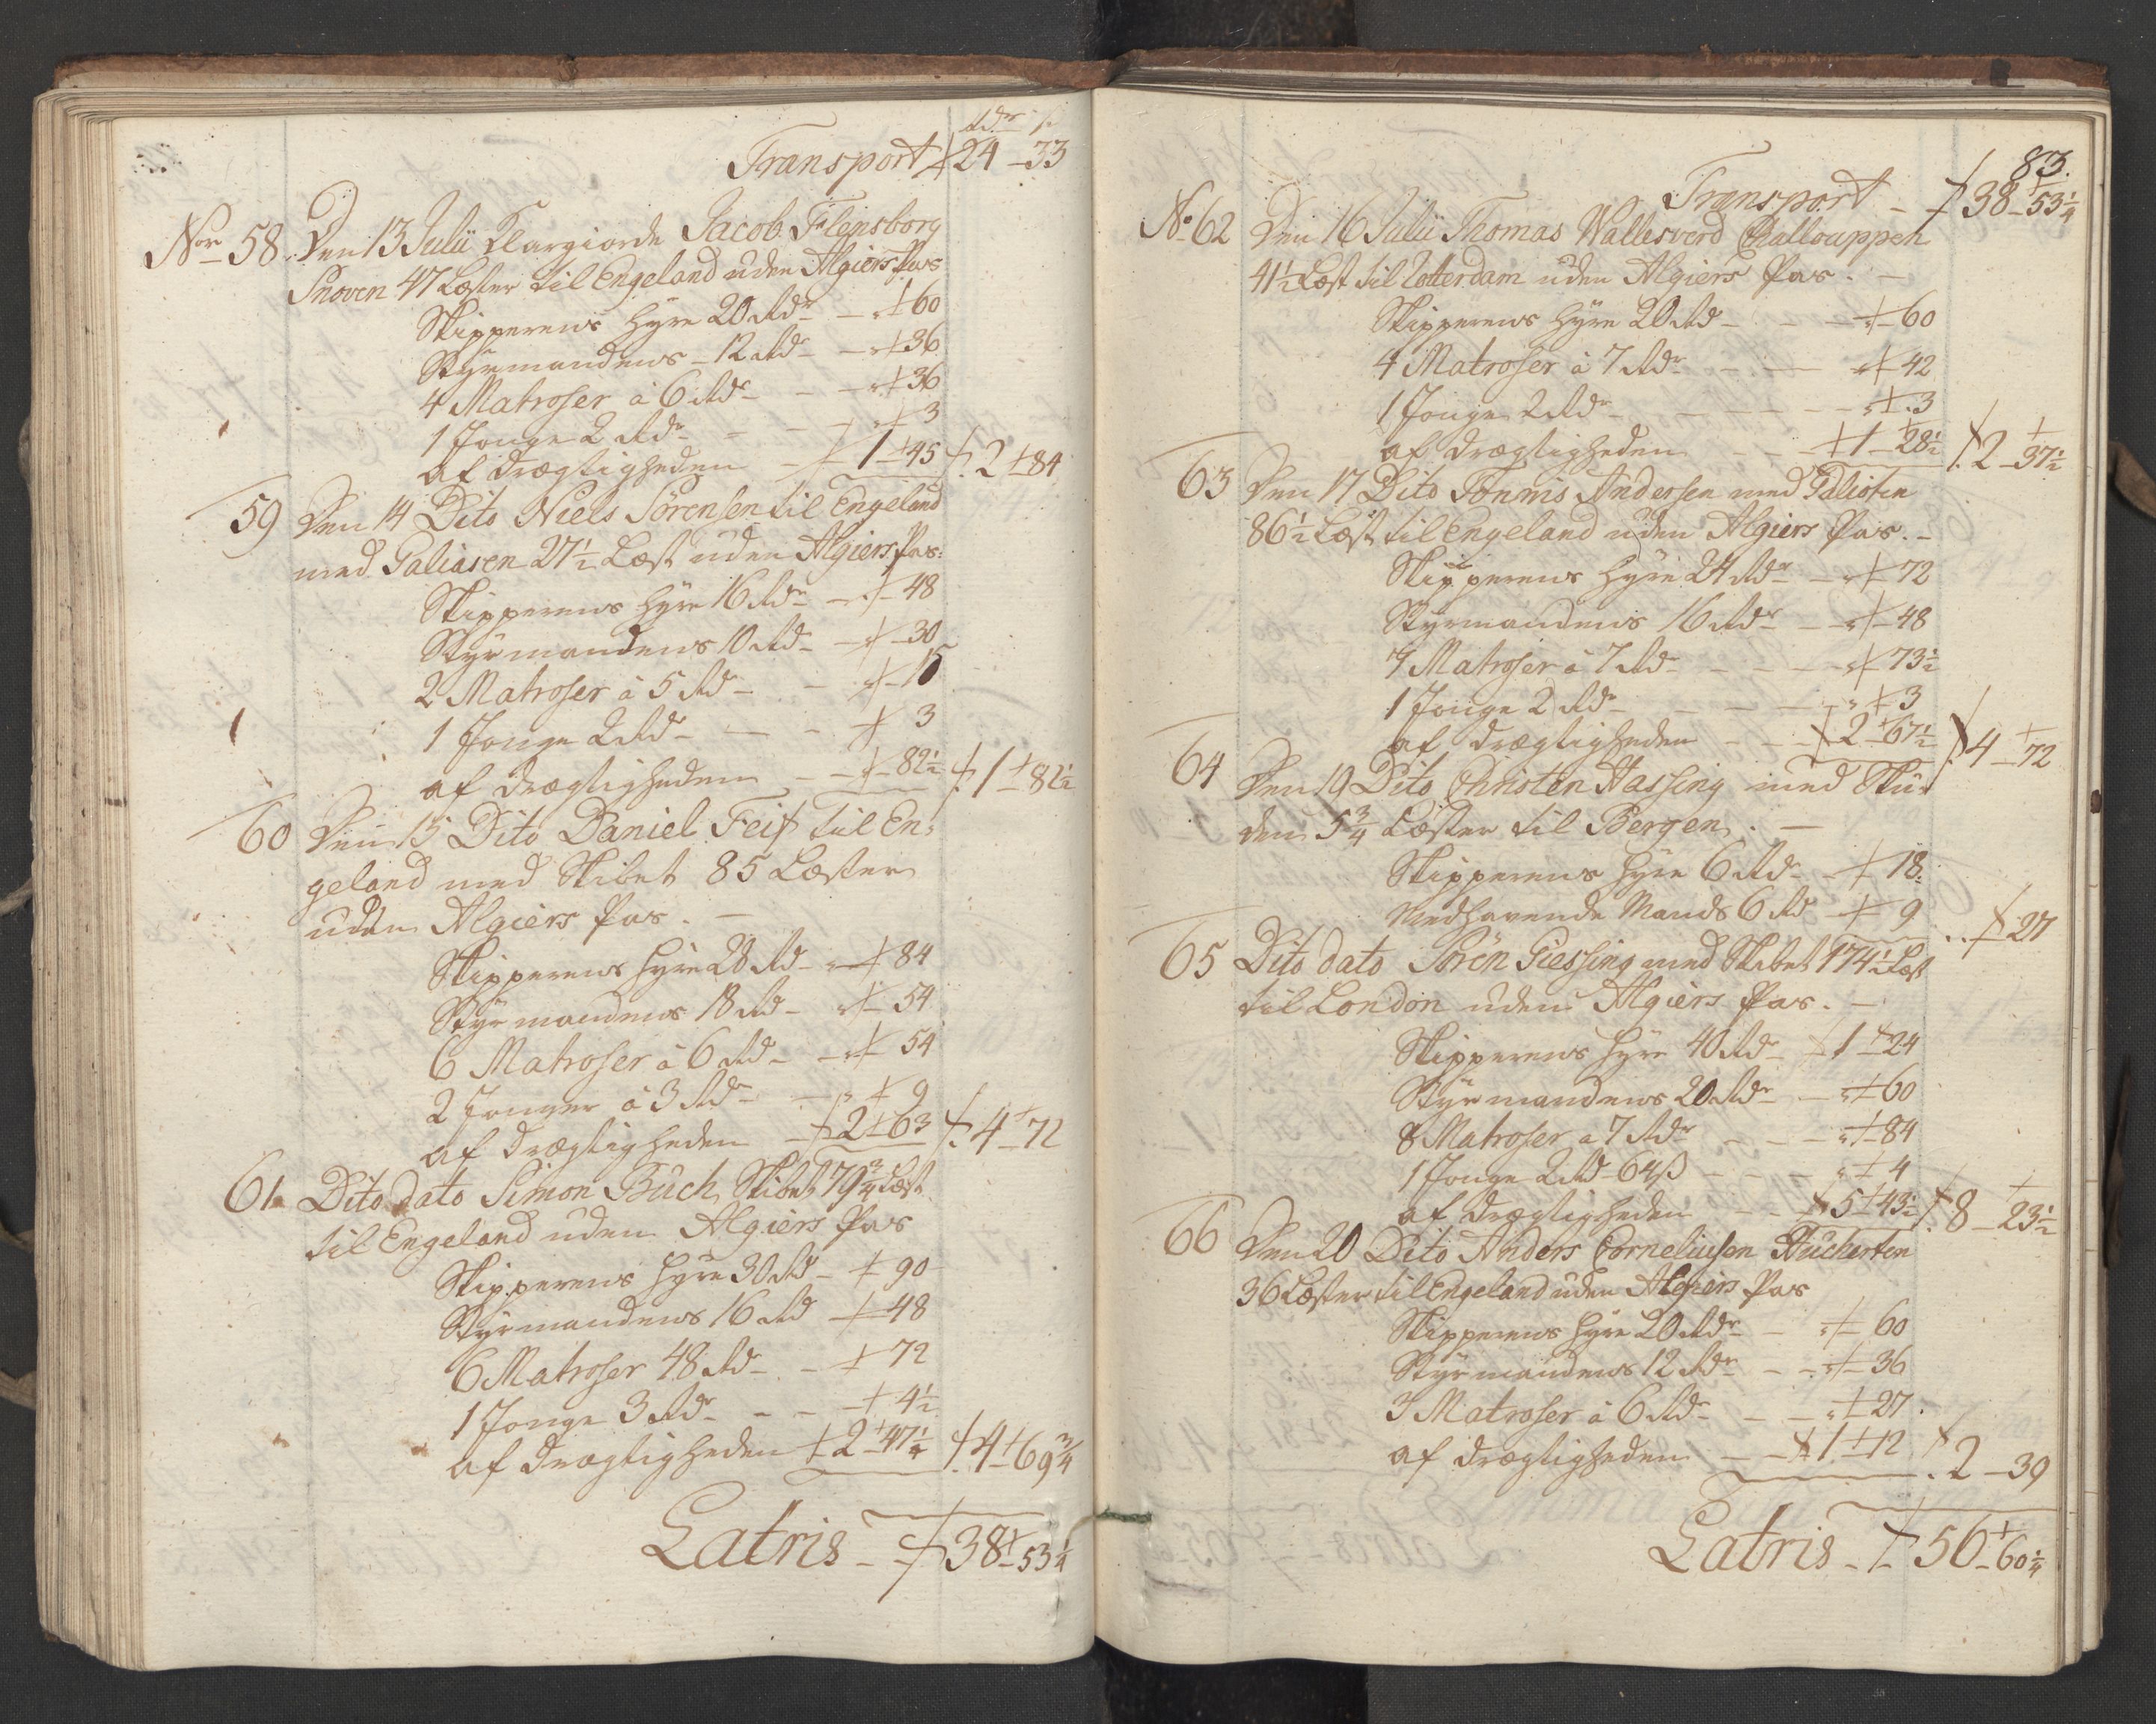 Rdr ß
Transport 24 - 33
Nor 58. Den 13 Julii Klargiorde Jacob Flensborg
Snoven 47 Læster til Engeland uden Algiers Pas
Skipperens Hyre 20 Rdr - " 60
Styrmandens - 12 Rdr - " 36
4 Matroser à 6 Rdr - - " 36
1 Jonge 2 Rdr - - - " 3
af Drægtigheden - 1 - 45 2 - 84
59 Den 14 Dito Niels Sörensen til Engeland
med Galiasen 27 1/2 Læst uden Algiers Pas:
Skipperens Hyre 16 Rdr - " 48
Styrmandens 10 Rd - " 30
2 Matroser à 5 Rd - - " 15
1 Jonge 2 Rd - - - 3
af Drægtigheden - - " 82 1/2 1 - 82 1/2
60 Den 15 Dito Daniel Feif til En-
geland med Skibet 85 Læster
uden Algiers Pas. -
Skipperens Hyre 28 Rd - " 84
Styrmandens 18 Rd - " 54
6 Matroser à 6 Rd - - " 54
2 Jonger à 3 Rdr - " 9
af Drægtigheden - 2 - 63 4 - 72
61. Dito dato Simon Buch, Skibet 79 3/4 Læst
til Engeland uden Algiers Pas
Skipperens Hyre 30 Rd - 90
Styrmandens 16 Rd - 48
6 Matroser 48 Rdr - - 72
1 Jonge 3 Rdr - - - 4 1/2
af Drægtigheden 2 - 47 1/4 4 - 69 3/4
Latris - 38 - 53 1/4
83.
Transport - 38 - 53 1/4
No 62 Den 16 Julii Thomas Wallesverd Challouppen
41 1/2 Læst til Rotterdam uden Algiers Pas. -
Skipperens Hyre 20 Rd - - " 60
4 Matroser à 7 Rdr - - " 42
1 Jonge 2 Rdr - - - - " 3
af Drægtigheden - - 1 - 28 1/2 2 - 37 1/2
63 Den 17 Dito Tönnis Andersen med Galioten
86 1/2 Læst til Engeland uden Algiers Pas. -
Skipperens Hyre 24 Rdr - " 72
Styrmandens 16 Rdr - - " 48
7 Matroser à 7 Rd - - - " 73 1/2
1 Jonge 2 Rdr - - - " 3
af Drægtigheden - - 2 - 67 1/2 4 - 72
64 Den 19 Dito Christen Hassing med Sku-
den 5 3/4 Læster til Bergen. -
Skipperens Hyre 6 Rdr - 18.
Medhavende Mands 6 Rd - 9 .. 27
65 Dito dato Sören Giessing med Skibet 174 1/2 Læst
til London uden Algiers Pas. -
Skipperens Hyre 40 Rdr 1 - 24
Styrmandens 20 Rdr - " 60
8 Matroser a 7 Rdr - - - " 84
1 Jonge 2 Rd 64 ß - - - " 4
af Drægtigheden - - 5 - 43 1/2 8 - 23 1/2
66 Den 20 Dito Anders Corneliusen Huckerten
36 Læster til Engeland uden Algiers Pas
Skipperens Hyre 20 Rdr - " 60
Styrmandens 12 Rdr - - " 36
3 Matroser à 6 Rdr - - " 27.
af Drægtigheden - - 1 - 12 2 - 39
Latris - 56 - 60 1/4